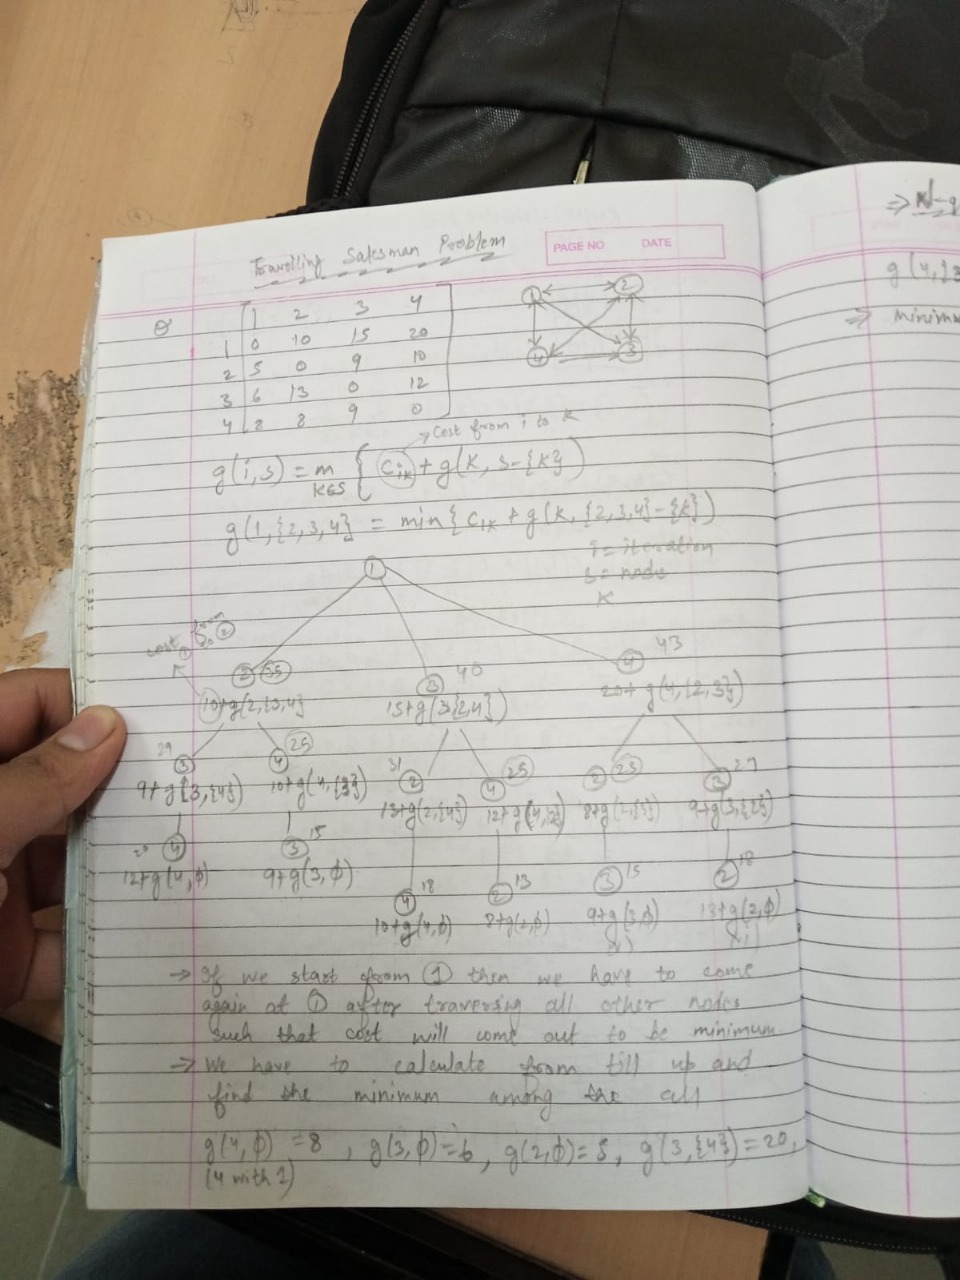 Travelling Salesman Problem
PAGE NO DATE
1 2 3 4
1 0 10 15 20
2 5 0 9 10
3 6 13 0 12
4 8 8 9 0
1 2
4 3
Cost from i to k
g(i,s) = m { Cik + g(k, s-{k})
k∈s
g(1,{2,3,4} = min{ C1k + g(k, {2,3,4}-{k})
i = iteration
s = node
k
1
cost from
① to ②
2 35
3 40
4 43
10+g(2,{3,4}
15+g(3{2,4})
20+g(4,{2,3})
29 3
4 25
31 2
4 25
2 23
3 27
9+g{3,{4})
10+g(4,{3})
13+g(2,{4})
12+g(4,{2})
8+g(2,{3})
9+g(3,{2})
20 4
3 15
12+g(4,φ)
9+g(3,φ)
4 18
2 13
3 15
2 18
10+g(4,φ)
8+g(2,φ)
9+g(3,φ)
13+g(2,φ)
→ If we start from ① then we have to come
again at ① after traversing all other nodes
such that cost will come out to be minimum
→ We have to calculate from till up and
find the minimum among the all
g(4,φ) = 8 , g(3,φ)=6, g(2,φ)=5, g(3,{4})=20,
(4 with 1)
g(4,{3
⇒ minimu